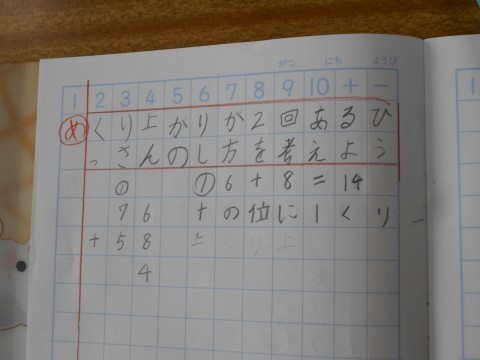 がつ にち ようび
1 2 3 4 5 6 7 8 9 10 + −
め くり上がりが2回あるひ
っさんのし方を考えよう
① ①6+8=14
76 十の位に1くり
+58 上
4